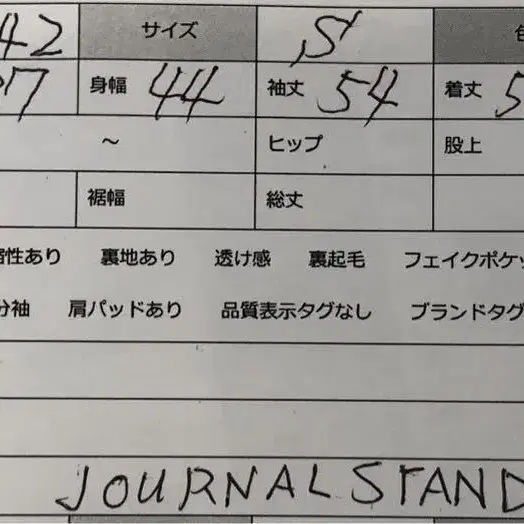 42 サイズ S 色
37 身幅 44 袖丈 54 着丈 5
～ ヒップ 股上
裾幅 総丈
性あり 裏地あり 透け感 裏起毛 フェイクポケッ
分袖 肩パッドあり 品質表示タグなし ブランドタグ
JOURNAL STAND